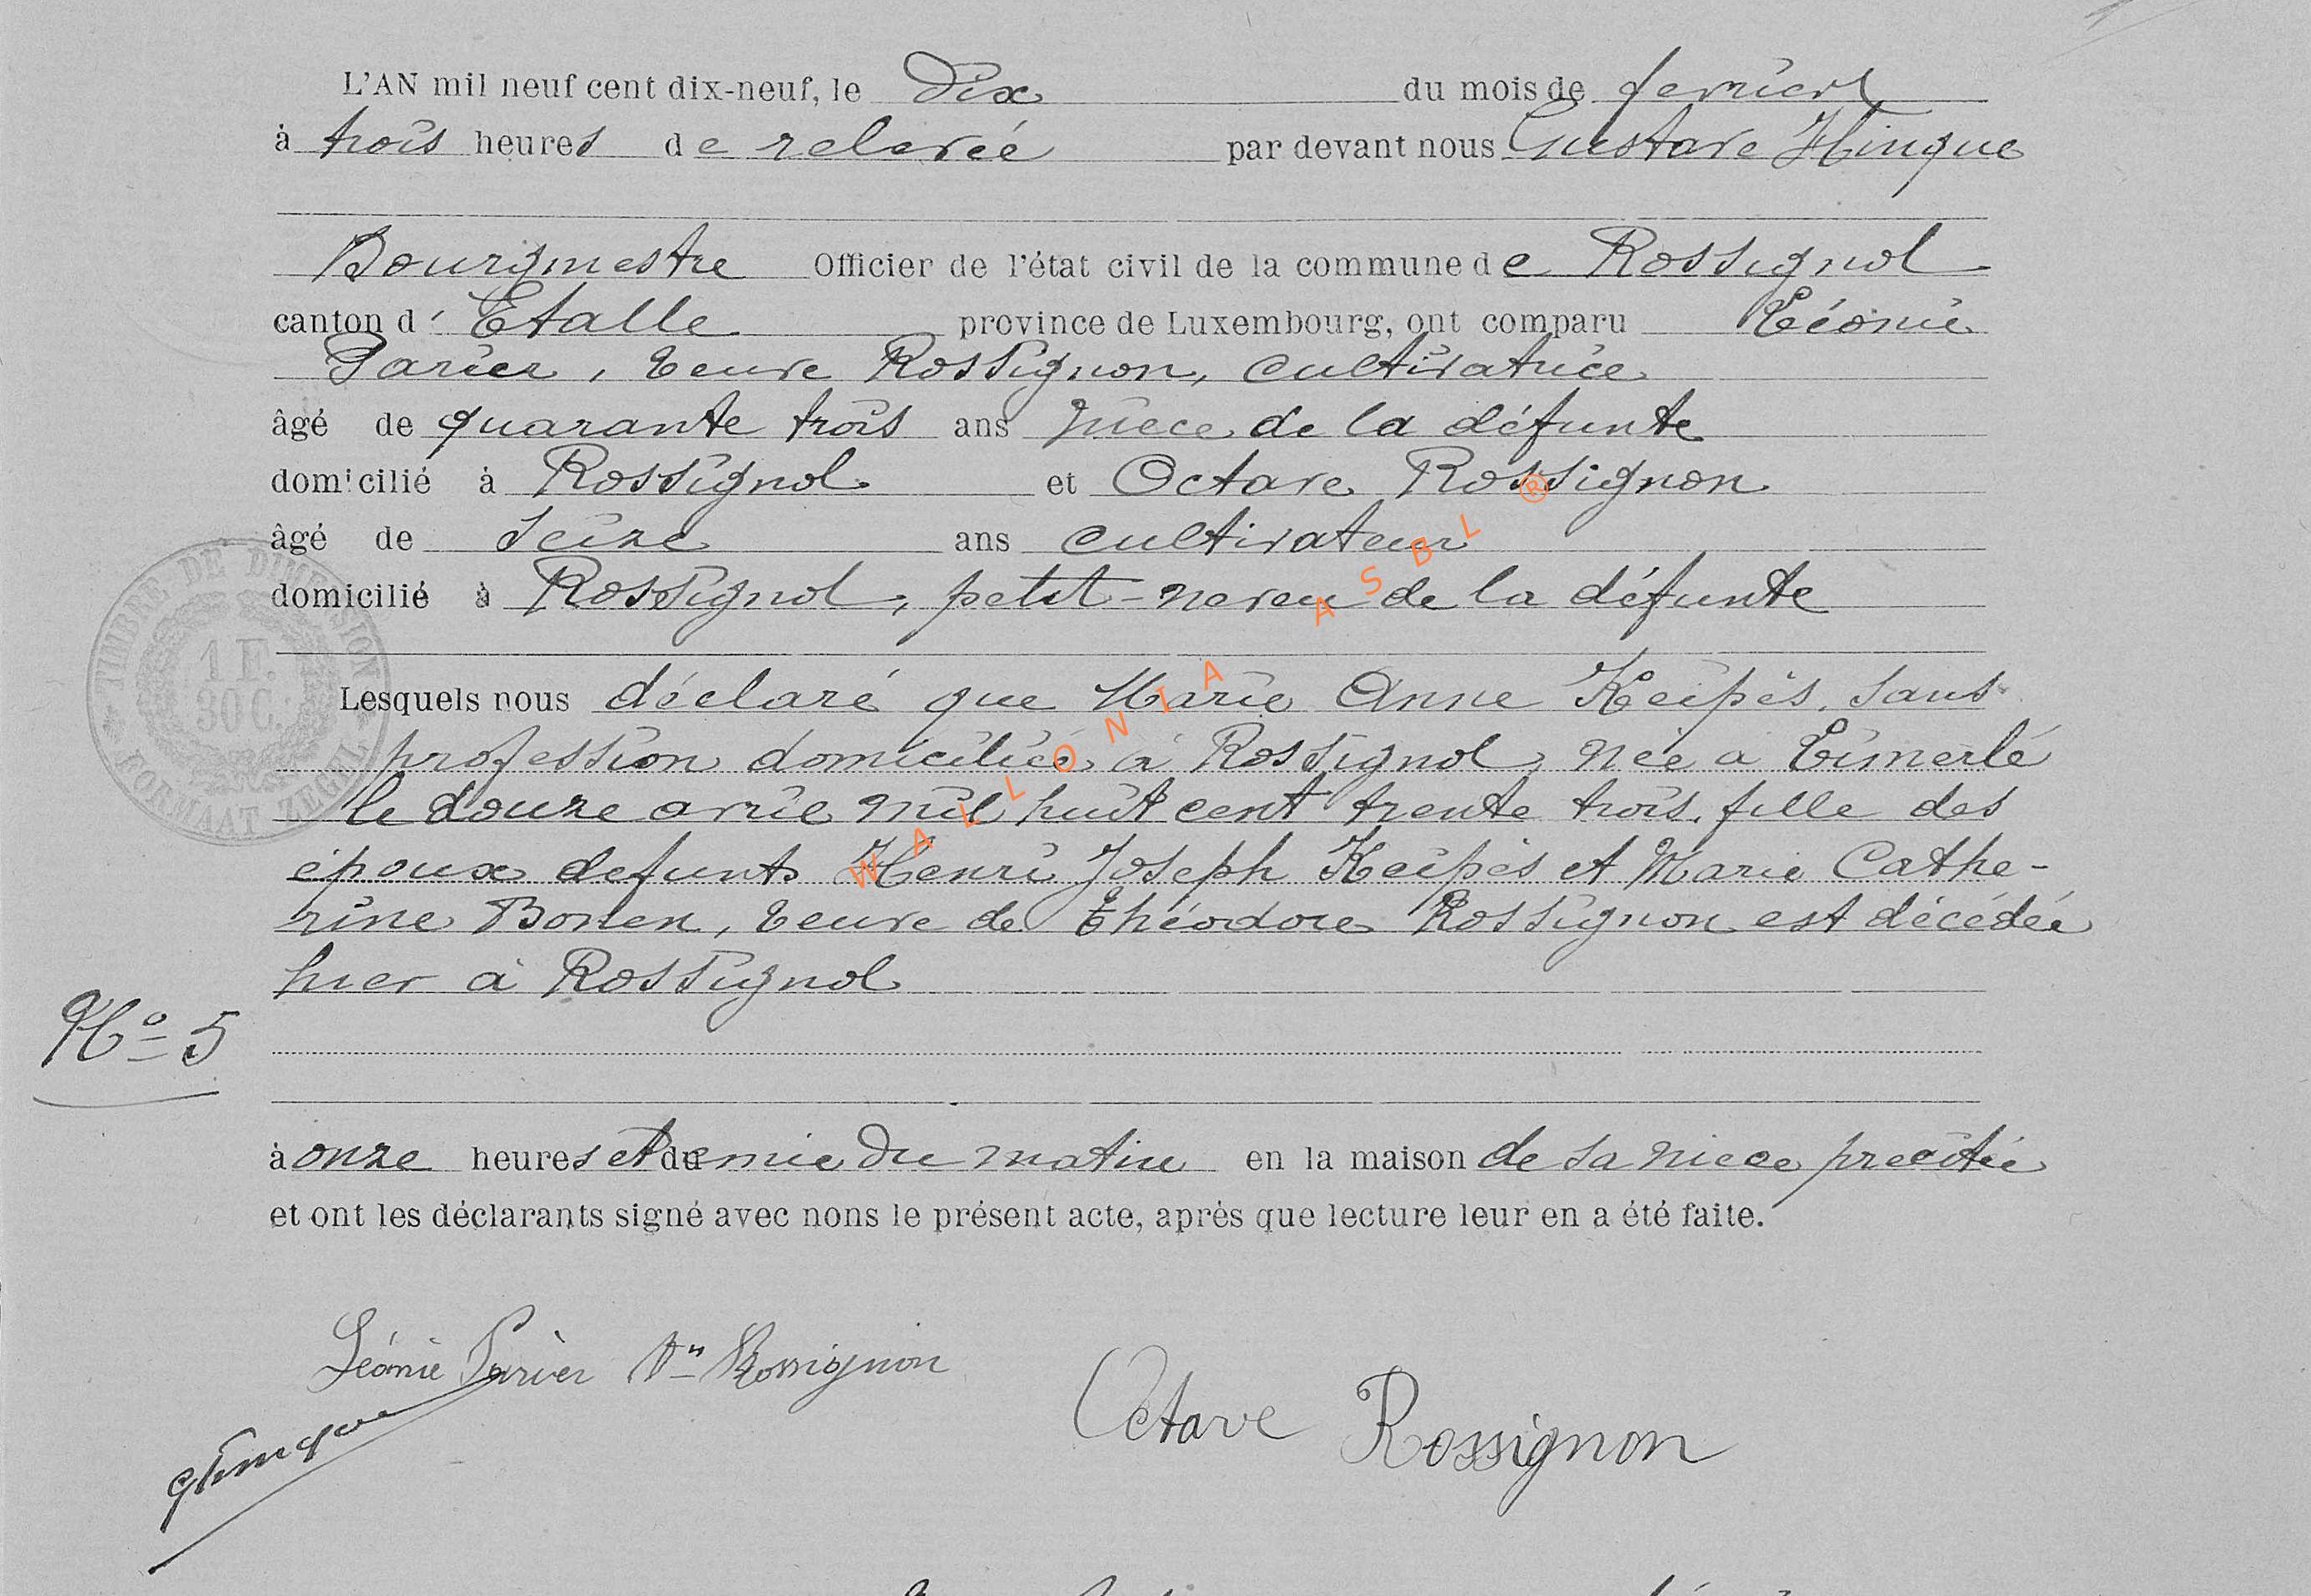 L'AN mil neuf cent dix-neuf, le Dix du mois de fevrier
à trois heures de relevée par devant nous Gustave Hinque
Bourgmestre Officier de l'état civil de la commune de Rossignol
canton d'Etalle province de Luxembourg, ont comparu Léonie
Parier, veuve Rossignon, cultivatrice
âgé de quarante trois ans nièce de la défunte
domicilié à Rossignol et Octave Rossignon
âgé de seize ans cultivateur
domicilié à Rossignol, petit-neveu de la défunte
Lesquels nous déclaré que Marie Anne Keipès, sans
profession domiciliée à Rossignol, née à Limerlé
le douze avril mil huit cent trente trois, fille des
époux defunts Henri Joseph Keipès et Marie Cathe-
rine Bonen, veuve de Théodore Rossignon est décédée
hier à Rossignol
No 5
à onze heures et demie du matin en la maison de sa niece precitée
et ont les déclarants signé avec nons le présent acte, après que lecture leur en a été faite.
Léonie Parier Ve Rossignon
Octave Rossignon
GHinque
TIMBRE DE DIMENSION
1 F.
30 C.
FORMAAT ZEGEL
WALLONIA ASBL ®